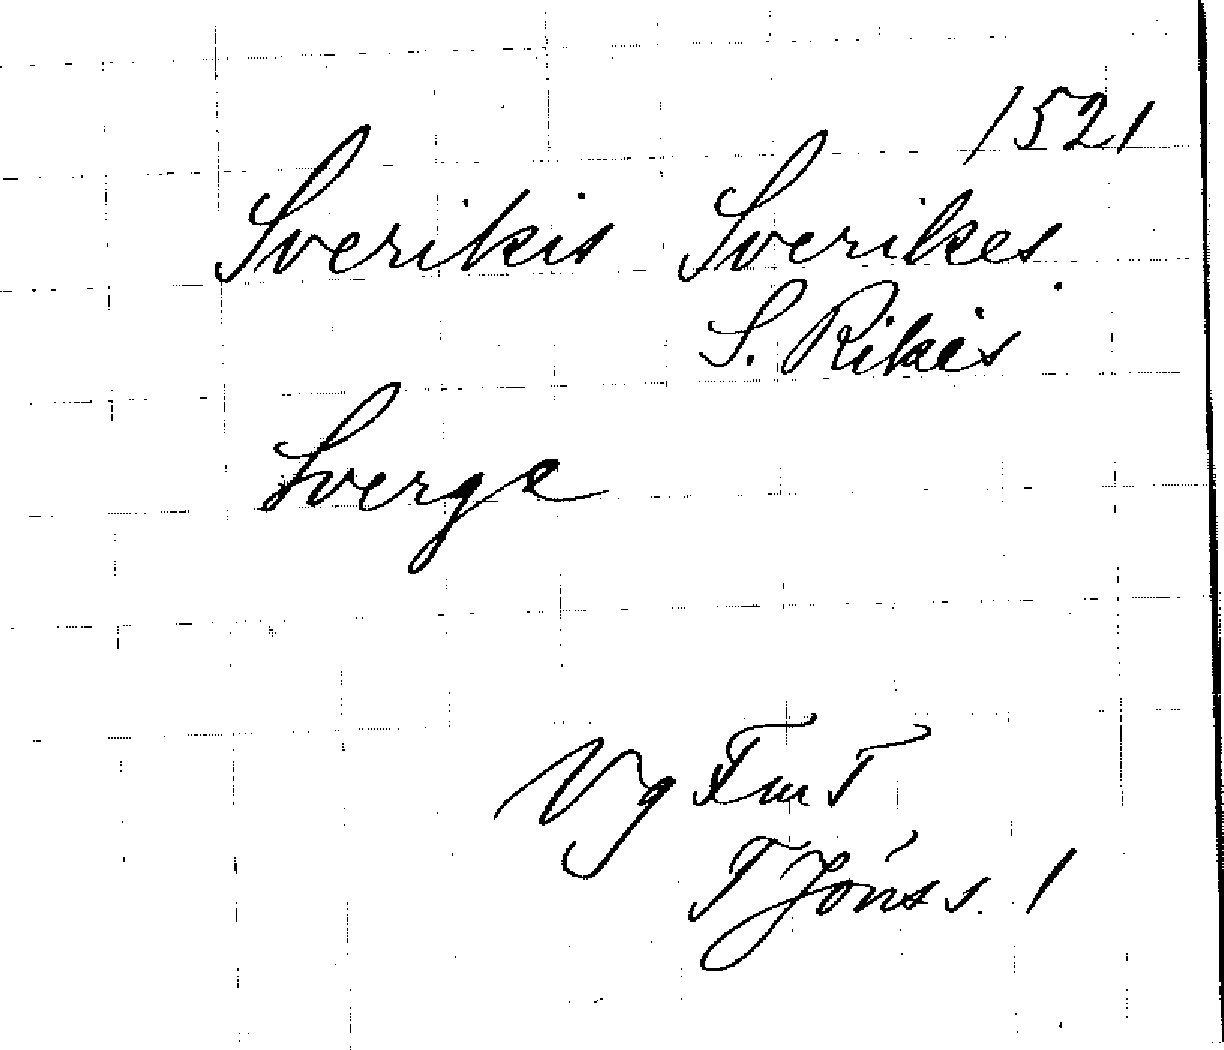 1521
Sverikis Sverikes
S. Rikis
Sverge
Vg FmT
FJónss. 1